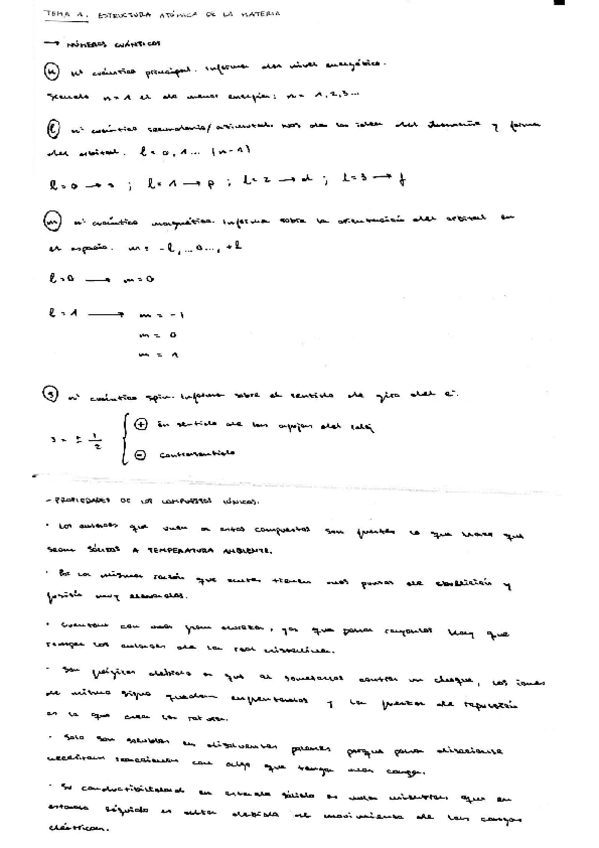 TEMA 1. ESTRUCTURA ATÓMICA DE LA MATERIA
→ NÚMEROS CUÁNTICOS
(n) nº cuántico principal. Informa del nivel energético.
Siendo n=1 el de menor energía; n= 1,2,3...
(l) nº cuántico secundario/azimutal. Nos da la idea del tamaño y forma
del orbital. l=0,1... (n-1)
l=0 → s ; l=1 → p ; l=2 → d ; l=3 → f
(m) nº cuántico magnético. Informa sobre la orientación del orbital en
el espacio. m= -l,...0...,+l
l=0 → m=0
l=1 → m = -1
m = 0
m = 1
(s) nº cuántico spin. Informa sobre el sentido de giro del e⁻.
s = ± 1/2 { (+) En sentido de las agujas del reloj
(-) contrasentido
- PROPIEDADES DE LOS COMPUESTOS IÓNICOS.
· Los enlaces que unen a estos compuestos son fuertes lo que hace que
sean SÓLIDOS A TEMPERATURA AMBIENTE.
· Por la misma razón que antes tienen unos puntos de ebullición y
fusión muy elevados.
· Cuentan con una gran dureza, ya que para rayarlos hay que
romper los enlaces de la red cristalina.
· Son frágiles debido a que al someterlos contra un choque, los iones
de mismo signo quedan enfrentados y la fuerza de repulsión
es la que crea la rotura.
· Solo son solubles en disolventes polares porque para disociarse
necesitan reaccionar con algo que tenga una carga.
· Su conductibilidad en estado sólido es nula mientras que en
estado líquido es alta debido al movimiento de las cargas
eléctricas.